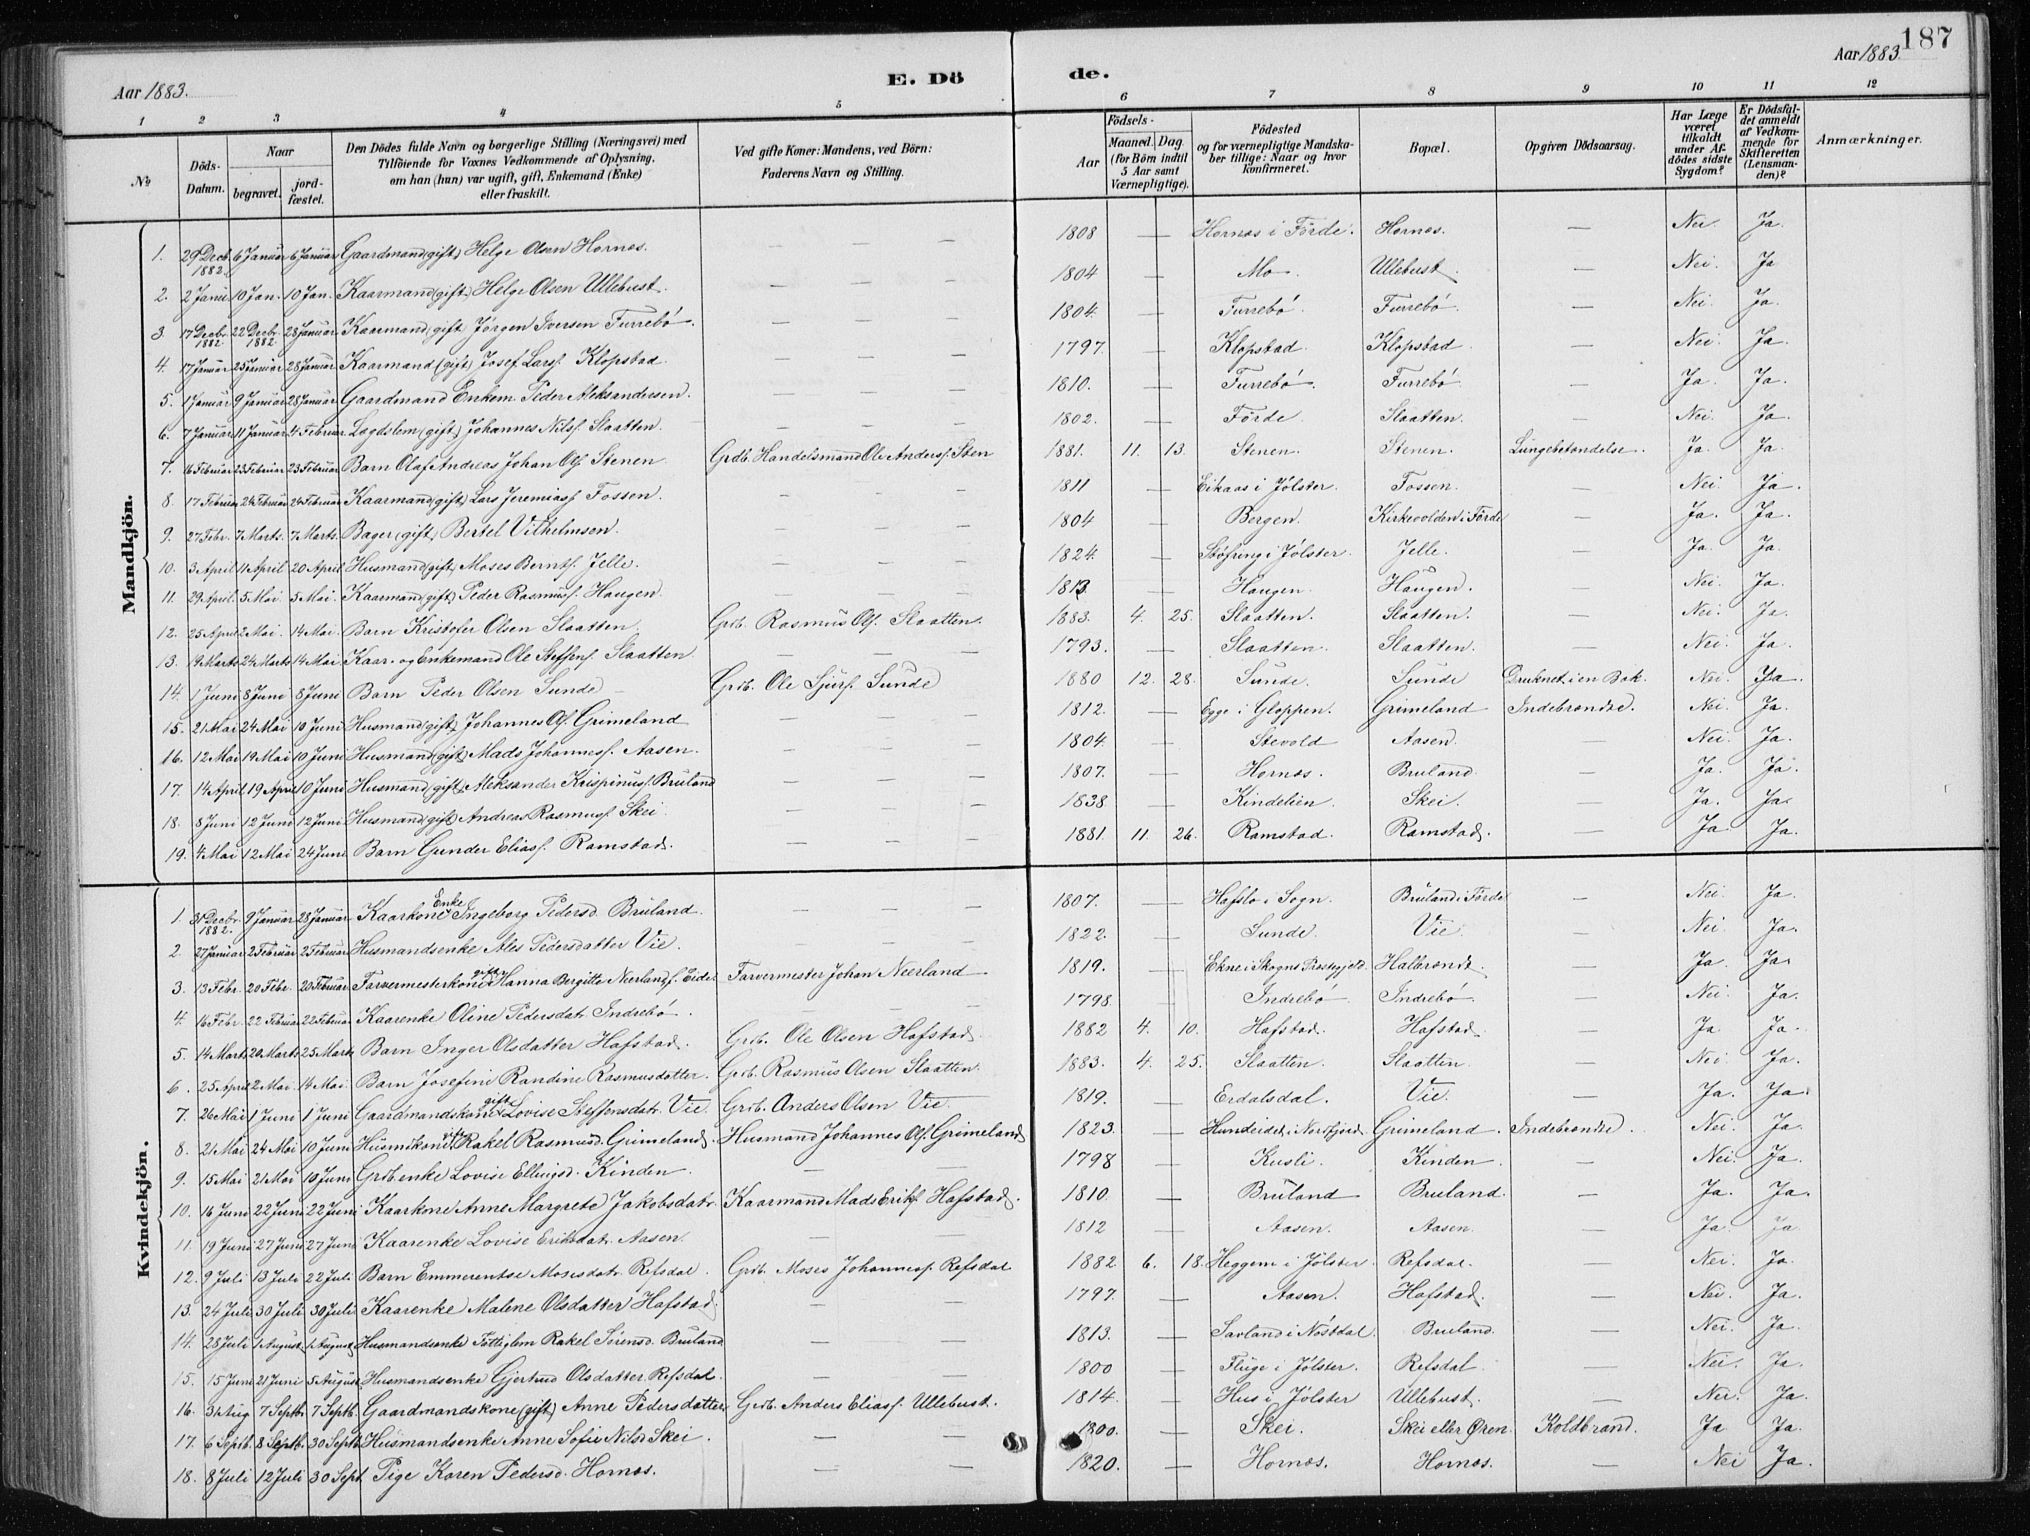 187
Aar 1883.
E. Döde.
Aar 1883
1 2 3 4 5 6 7 8 9 10 11 12
No
Döds-Datum.
Naar
begravet.
jordfæstet.
Den Dödes fulde Navn og borgerlige Stilling (Næringsvei) med
Tilföiende for Voxnes Vedkommende af Oplysning,
om han (hun) var ugift, gift, Enkemand (Enke)
eller fraskilt.
Ved gifte Koner: Mandens, ved Börn:
Faderens Navn og Stilling.
Födsels-
Aar
Maaned. Dag.
(for Börn indtil
5 Aar samt
Værnepligtige).
Födested
og for værnepligtige Mandska-
ber tillige: Naar og hvor
konfirmeret.
Bopæl.
Opgiven Dödsaarsag.
Har Læge
været
tilkaldt
under Af-
dödes sidste
Sygdom?
Er Dödsfal-
det anmeldt
af Vedkom-
mende for
Skifteretten
(Lensman-
den)?
Anmærkninger.
Mandkjön.
1. 29 Decb. 1882 6 Januar 6 Januar Gaardmand (gift) Helge Olsen Hornes. — — — 1808 — Hornes i Förde. Hornes. — Nei. Ja.
2. 2 Janu. 10 Jan. 10 Jan. Kaarmand (gift) Helge Olsen Ullebust. — — — 1804 — Mo. Ullebust. — Nei. Ja
3. 17 Decbr. 1882 22 Decbr. 1882 28 Januar Kaarmand (gift) Jørgen Iversen Furrebö. — — — 1804. — Furrebö. Furrebö. — Nei. Ja.
4. 17 Januar 25 Januar 28 Januar Kaarmand (gift) Josef Lars. Klopstad — — — 1797. — Klopstad. Klopstad — Nei. Ja.
5. 1 Januar 9 Januar 28 Januar Gaardmand Enkem. Peder Aleksandersen. — — — 1810. — Furrebö. Furrebö. — Ja. Ja.
6. 7 Januar 11 Januar 4 Februar Lægdslem (gift) Johannes Nils. Slaatten. — — — 1802. — Förde. Slaatten. — Nei. Ja.
7. 16 Februar 23 Februar 23 Februar Barn Olaf Andreas Johan Ols. Stenen. Grdb. Handelsmand Ole Anders. Sten 1881. 11. 13. Stenen. Stenen. Lungebetændelse. Ja. Ja.
8. 17 Februar 24 Februar 24 Februar Kaarmand (gift) Lars Jeremias. Fossen. — — — 1811 — Eikaas i Jølster. Fossen. — Nei. Ja.
9. 27 Febr. 7 Marts. 7 Marts. Bager (gift) Bertel Vilhelmsen. — — — 1804 — Bergen. Kirkevolden i Förde — Ja. Ja.
10. 3 April 11 April 20 April Husmand (gift) Moses Bernts. Jelle. — — — 1824. — Støfring i Jølster. Jelle. — Ja. Ja.
11. 29 April. 5 Mai. 5 Mai. Kaarmand (gift) Peder Rasmus. Haugen. — — — 1813. — Haugen. Haugen. — Nei. Ja.
12. 25 April 2 Mai. 14 Mai. Barn Kristofer Olsen Slaatten. Grdb. Rasmus Ols. Slaatten. 1883. 4. 25. Slaatten. Slaatten. — Nei. Ja.
13. 19 Marts 24 Marts 14 Mai Kaar- og Enkemand Ole Steffens. Slaatten. — — — 1793. — Slaatten. Slaatten. — Nei. Ja.
14. 1 Juni 8 Juni 8 Juni Barn Peder Olsen Sunde — Grdb. Ole Sjurs. Sunde 1880 12. 28. Sunde. Sunde Druknet i en Bæk. Nei. Ja.
15. 21 Mai 24 Mai 10 Juni Husmand (gift) Johannes Ols. Grimeland — — — 1812. — Egge i Gloppen. Grimeland Indebrændt. Nei. Ja.
16. 12 Mai 19 Mai 10 Juni Husmand (gift) Mads Johannes. Aasen. — — — 1804. — Stevold Aasen. — Nei. Ja.
17. 14 April 19 April 10 Juni Husmand (gift) Aleksander Krispinus. Bruland — — — 1807. — Hornes. Bruland. — Ja. Ja.
18. 8 Juni 12 Juni 12 Juni Husmand (gift) Andreas Rasmus. Skei. — — — 1838 — Kindelien. Skei. — Ja. Ja.
19. 4 Mai 12 Mai 24 Juni Barn Gunder Elias. Ramstad. — — — 1881. 11. 26. Ramstad. Ramstad. — Ja Ja.
Kvindekjön.
1. 31 Decbr. 1882. 9 Januar 28 Januar Kaarkone Enke Ingeborg Pedersd. Bruland. — — — 1807. — Hafslo i Sogn. Bruland i Förde — Nei. Ja.
2. 27 Januar 2 Februar 2 Februar Husmandsenke Ales Pedersdatter Vie. — — — 1822. — Sunde. Vie. — Nei. Ja.
3. 13 Febr. 20 Febr. 20 Februar Farvermesterkone gift Hanna Bergitte Neerland, f. Eider Farvermester Johan Neerland 1819. — Ekne i Skogns Præstegjeld. Halbrendt. — Ja. Ja.
4. 16 Febr. 22 Februar 22 Februar Kaarenke Oline Pedersdat. Indrebö. — — 1798. — Indrebö. Indrebö. — Nei. Ja.
5. 14 Marts 20 Marts 25 Marts Barn Inger Olsdatter Hafstad. Grdb. Ole Olsen Hafstad. 1882 4. 10. Hafstad. Hafstad. — Ja Ja.
6. 25 April 2 Mai. 14 Mai. Barn Josefine Randine Rasmusdatter. Grdb. Rasmus Olsen Slaatten. 1883. 4. 25. Slaatten. Slaatten. — Nei Ja.
7. 26 Mai 1 Juni 1 Juni Gaardmandskone gift Lovise Steffensdatr. Vie. Grdb. Anders Olsen Vie. 1819. — Erdalsdal. Vie. — Ja. Ja.
8. 21 Mai 24 Mai 10 Juni Husm.kone gift Rakel Rasmusd. Grimeland. Husmand Johannes Ols. Grimeland 1823. — Hundeidet i Nordfjord. Grimeland. Indebrændt. Nei. Ja.
9. 15 Mai 21 Mai 10 Juni Grdb.enke Lovise Ellingsd. Kinden. — — 1798 — Kusli. Kinden. — Nei. Ja.
10. 16 Juni 22 Juni 22 Juni Kaarkone Anne Margrete Jakobsdatr. Kaarmand Mads Eriks. Hafstad. 1810. — Bruland Bruland. — Ja. Ja.
11. 19 Juni 27 Juni 27 Juni Kaarenke Lovise Eriksdatr. Aasen. — — 1812 — Aasen. Aasen. — Ja. Ja
12. 9 Juli 13 Juli 22 Juli Barn Emmerentse Mosesdatr. Refsdal. Grdb. Moses Johannes. Refsdal 1882 6. 18. Heggem i Jølster. Refsdal. — Nei. Ja.
13. 24 Juli 30 Juli 30 Juli Kaarenke Malene Olsdatter Hafstad. — — 1797. — Aasen. Hafstad. — Nei. Ja.
14. 28 Juli 1 August 1 August Husmandsenke Fattiglem Rakel Sørensd. Bruland — — 1813. — Savland i Nøstdal. Bruland. — Nei. Ja.
15. 15 Juni 21 Juni 5 August Husmandsenke Gjertrud Olsdatter Refsdal. — — 1800 — Fluge i Jølster. Refsdal. — Nei. Ja.
16. 31 Aug. 7 Septb. 7 Septb. Gaardmandskone (gift) Anne Pedersdatter Grdb. Anders Elias. Ullebust. 1814. — Hus i Jølster Ullebust. — Nei. Ja.
17. 6 Septb. 8 Septb. 30 Septb. Husmandsenke Anne Sofie Nilsd. Skei. — — 1800. — Skei. Skei eller Øren. Koldbrand. Ja Ja.
18. 8 Juli 12 Juli 30 Sept. Pige Karen Pedersd. Hornes. — — 1820. — Hornes. Hornes. — Nei Ja.